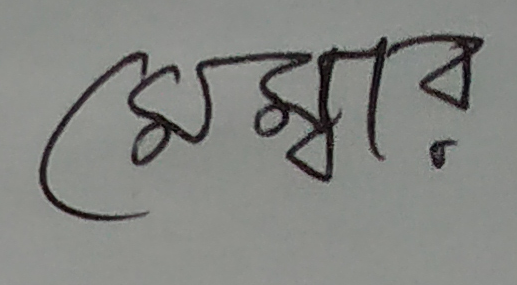 মেম্বার